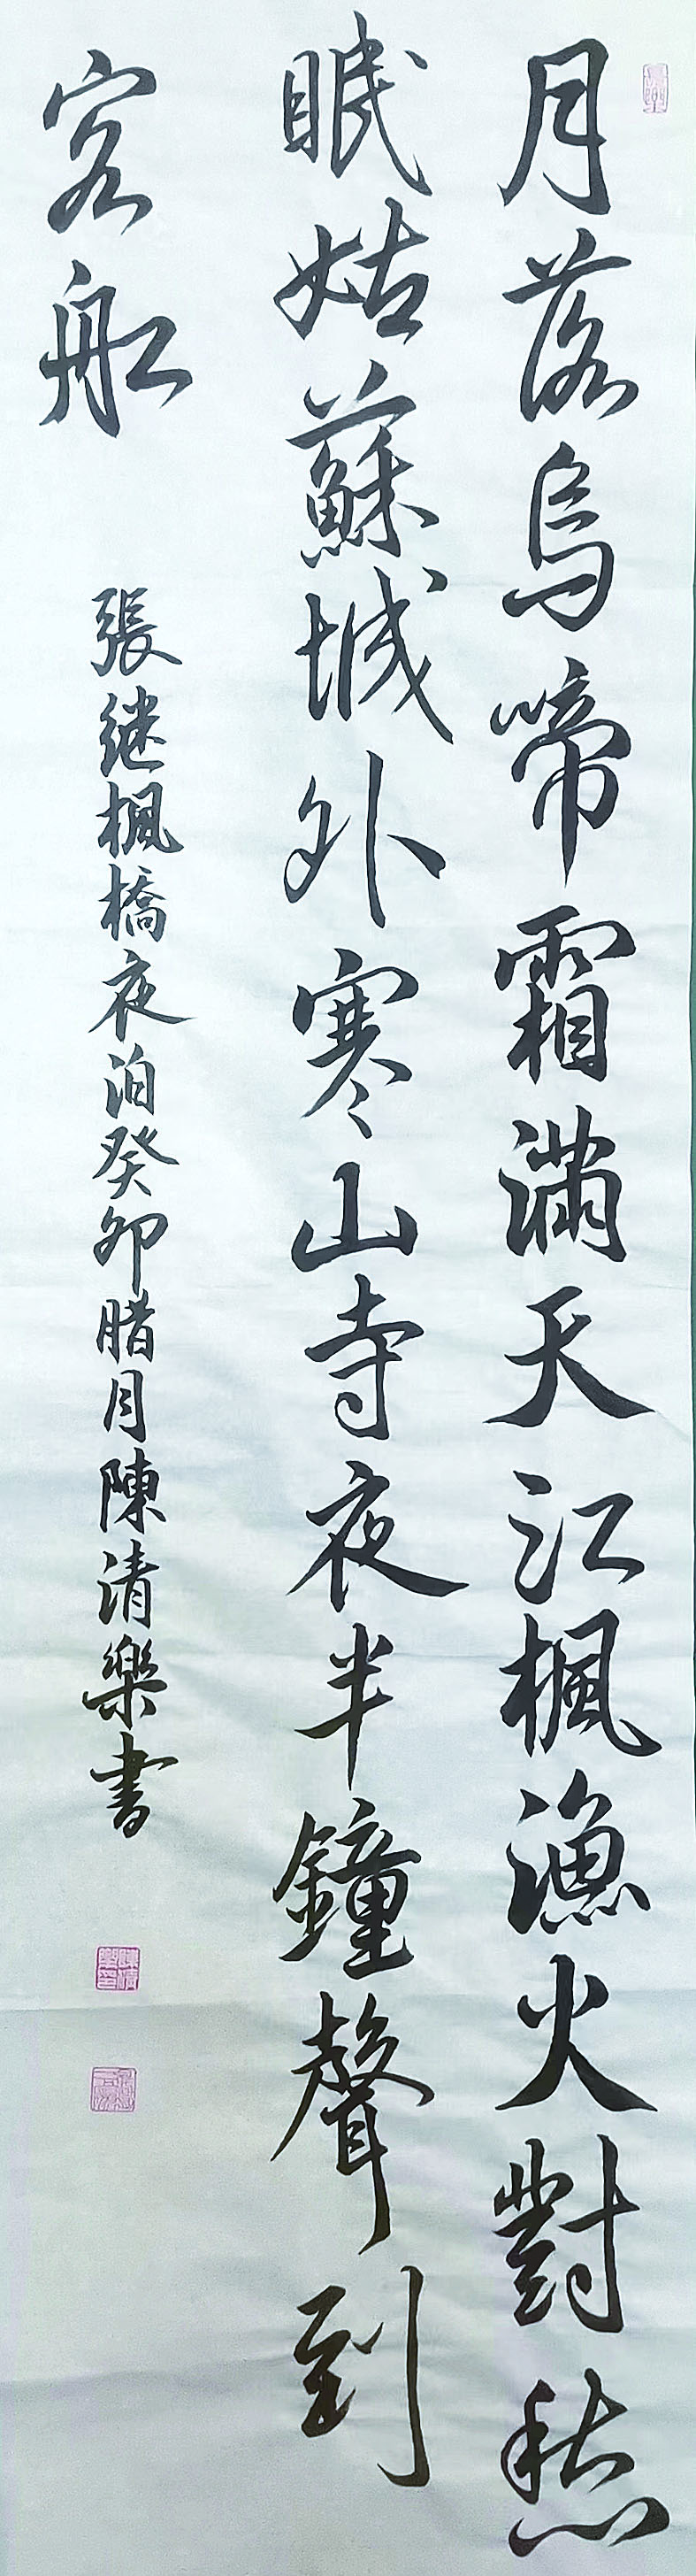 月落烏啼霜滿天江楓漁火對愁
眠姑蘇城外寒山寺夜半鐘聲到
客船
張継楓橋夜泊癸卯腊月陳清樂書